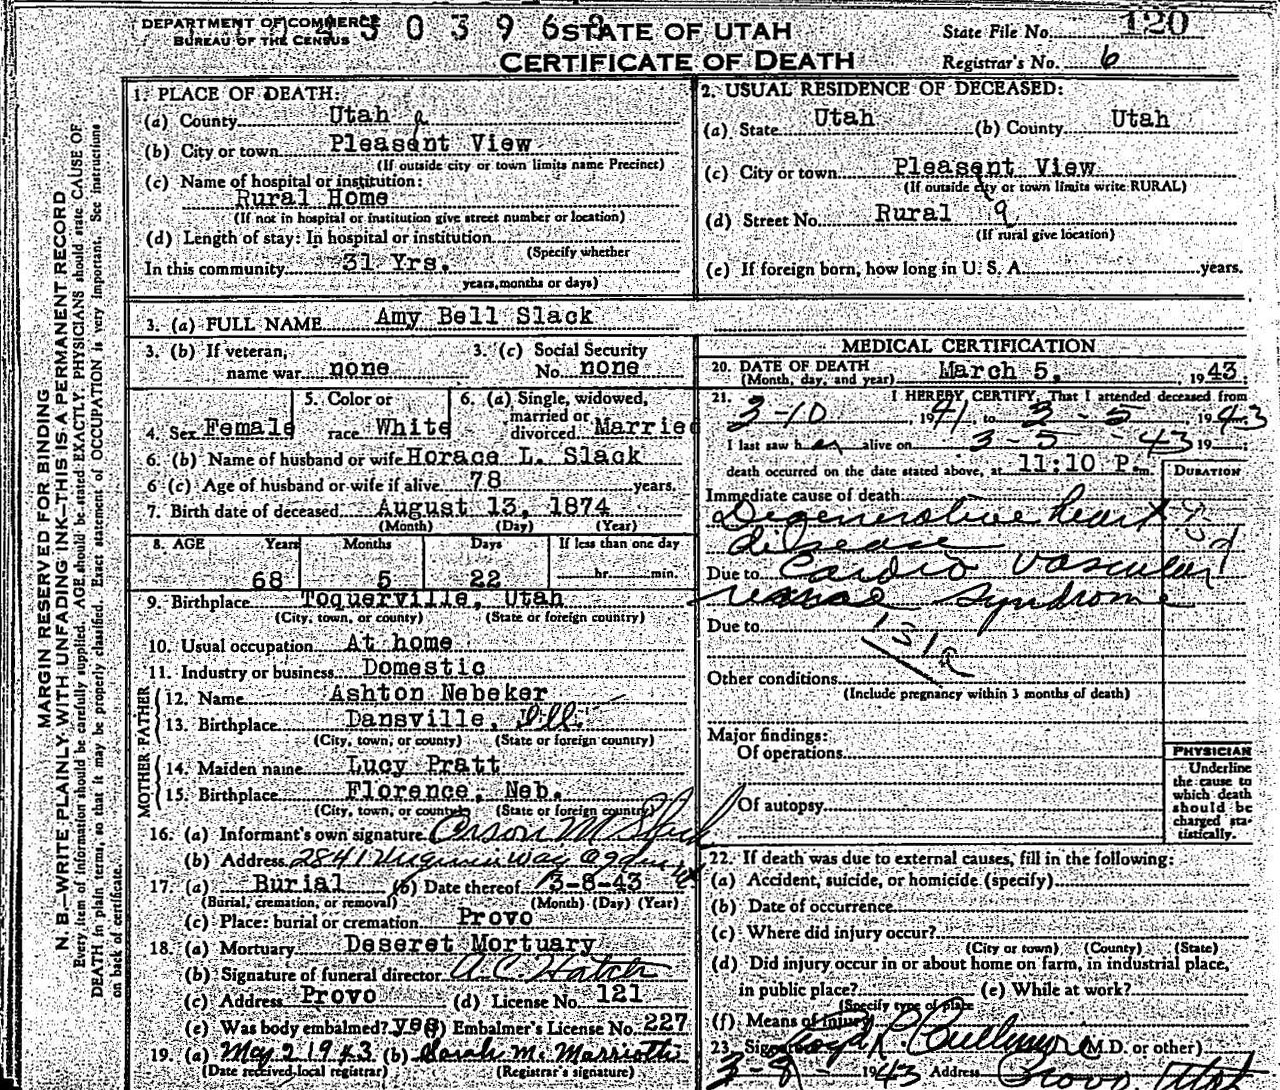 DEPARTMENT OF COMMERCE
BUREAU OF THE CENSUS
STATE OF UTAH
CERTIFICATE OF DEATH
State File No. 120
Registrar's No. 6
MARGIN RESERVED FOR BINDING
N. B.—WRITE PLAINLY, WITH UNFADING INK—THIS IS A PERMANENT RECORD
Every item of information should be carefully supplied. AGE should be stated EXACTLY. PHYSICIANS should state CAUSE OF
DEATH in plain terms, so that it may be properly classified. Exact statement of OCCUPATION is very important. See instructions
on back of certificate.
1. PLACE OF DEATH:
(a) County Utah
(b) City or town Pleasent View
(If outside city or town limits name Precinct)
(c) Name of hospital or institution:
Rural Home
(If not in hospital or institution give street number or location)
(d) Length of stay: In hospital or institution
(Specify whether
In this community 31 Yrs.
years, months or days)
2. USUAL RESIDENCE OF DECEASED:
(a) State Utah (b) County Utah
(c) City or town Pleasent View
(If outside city or town limits write RURAL)
(d) Street No. Rural
(If rural give location)
(e) If foreign born, how long in U. S. A. years.
3. (a) FULL NAME Amy Bell Slack
3. (b) If veteran, name war none
3. (c) Social Security No. none
4. Sex Female
5. Color or race White
6. (a) Single, widowed, married or divorced Married
6. (b) Name of husband or wife Horace L. Slack
6 (c) Age of husband or wife if alive 78 years.
7. Birth date of deceased August 13, 1874
(Month) (Day) (Year)
8. AGE Years Months Days If less than one day
68 5 22 hr. min.
9. Birthplace Toquerville, Utah
(City, town, or county) (State or foreign country)
10. Usual occupation At home
11. Industry or business Domestic
FATHER
12. Name Ashton Nebeker
13. Birthplace Dansville, Ill.
(City, town, or county) (State or foreign country)
MOTHER
14. Maiden name Lucy Pratt
15. Birthplace Florence, Neb.
(City, town, or county) (State or foreign country)
16. (a) Informant's own signature Orson M. Slack
(b) Address 2841 Virginia Way Ogden
17. (a) Burial (b) Date thereof 3-8-43
(Burial, cremation, or removal) (Month) (Day) (Year)
(c) Place: burial or cremation Provo
18. (a) Mortuary Deseret Mortuary
(b) Signature of funeral director A. C. Hatch
(c) Address Provo (d) License No. 121
(e) Was body embalmed? yes Embalmer's License No. 227
19. (a) May 2 1943 (b) Sarah M. Marriott
(Date received local registrar) (Registrar's signature)
MEDICAL CERTIFICATION
20. DATE OF DEATH March 5, 1943.
(Month, day, and year)
21. I HEREBY CERTIFY, That I attended deceased from
3-10, 1941, to 3-5 1943
I last saw her alive on 3-5-43 19
death occurred on the date stated above, at 11:10 P.m.
DURATION
Immediate cause of death
Degenerative heart
disease
Due to Cardio vascular
renal syndrome
Due to
131a
Other conditions
(Include pregnancy within 3 months of death)
Major findings:
Of operations
Of autopsy
PHYSICIAN
Underline
the cause to
which death
should be
charged sta-
tistically.
22. If death was due to external causes, fill in the following:
(a) Accident, suicide, or homicide (specify)
(b) Date of occurrence
(c) Where did injury occur?
(City or town) (County) (State)
(d) Did injury occur in or about home on farm, in industrial place,
in public place? (e) While at work?
(Specify type of place
(f) Means of injury
23. Signature Lloyd L. Cullimore (M.D. or other)
3-8- 1943 Address Provo Utah